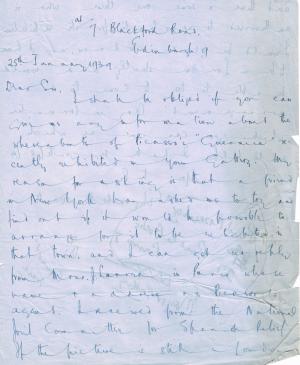 at
7 Blackford Road,
Edinburgh 9
25th January 1939
Dear Sir,
I shall be obliged if you can
give me any information about the
whereabouts of Picasso's "Guernica" re-
cently exhibited in your Gallery. My
reason for asking is that a friend
in New York has asked me to try and
find out if it would be possible to
arrange for it to be exhibited in
that town, and I can get no reply
from Mons. in Paris whose
name & address
agent. I received from the National
Joint Committee for Spanish Relief
If the picture is still in London